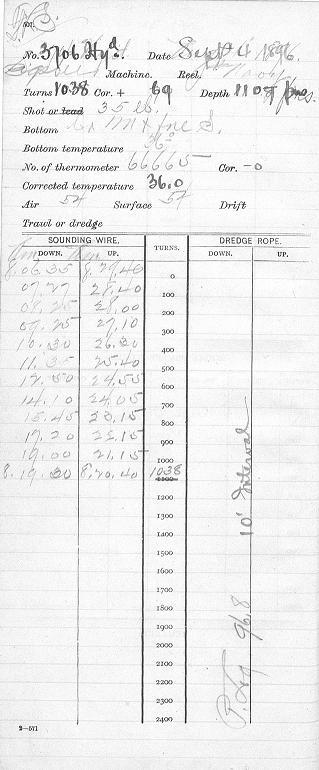 No. 3706 Hyd. Date Sept 4 1896
Machine. Reel.
Turns 1038 Cor. + 69 Depth 1107 fms.
Shot or lead 35 lb.
Bottom
Bottom temperature 36°
No. of thermometer 66665 Cor. -0
Corrected temperature 36.0
Air 54 Surface 54 Drift
Trawl or dredge
SOUNDING WIRE. TURNS. DREDGE ROPE.
DOWN. UP. DOWN. UP.
8.06.35 8.29.40 0
07.27 28.40 100
08.25 28.00 200
09.25 27.10 300
10.30 26.20 400
11.35 25.40 500
12.50 24.55 600
14.10 24.05 700
15.45 23.15 800
17.20 22.15 900
19.00 21.15 1000
8.19.30 8.20.40 1038 1100
1200
1300
1400
1500
1600
1700
1800
1900
2000
2100
2200
2300
2400
P. Log 96.8 10' Interval
2—571